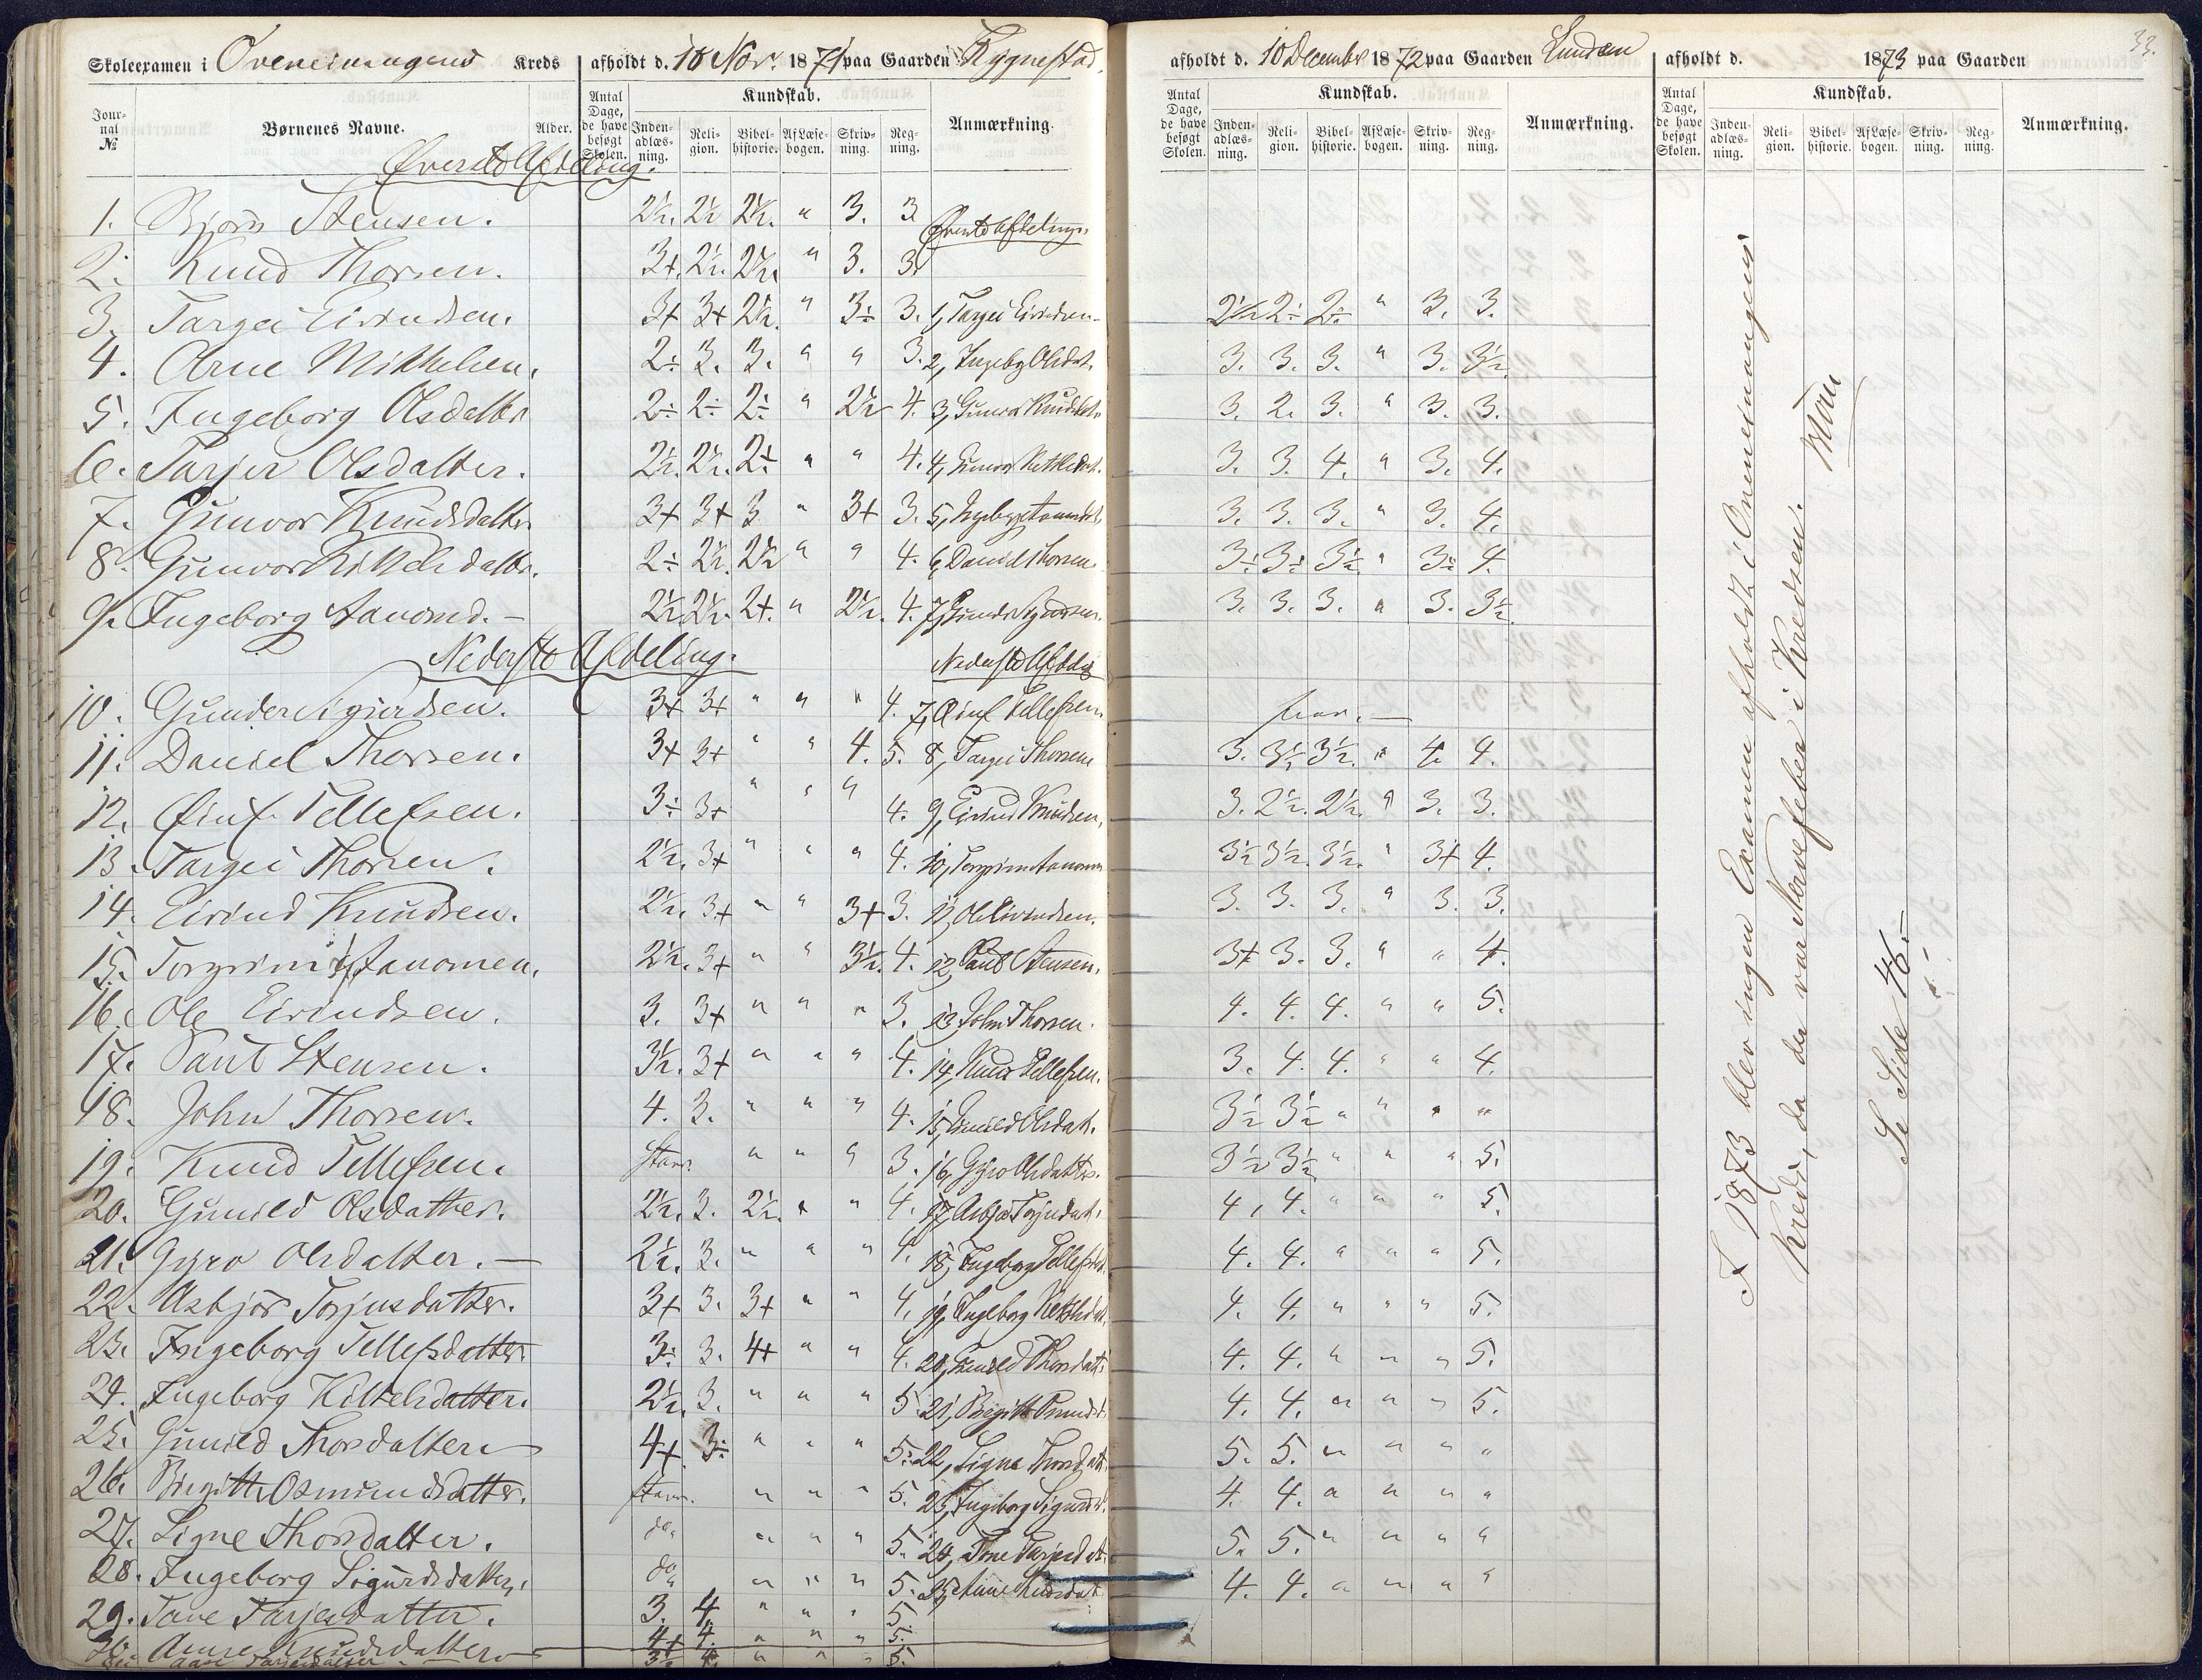 Skoleexamen i Kreds afholdt d. 10 Nov. 1871 paa Gaarden Rygnestad.
Journal № Børnenes Navne. Alder. Antal Dage, de have besøgt Skolen. Kundskab. Indenadlæsning. Religion. Bibelhistorie. Af Læsebogen. Skrivning. Regning. Anmærkning.
Øverste Afdeling.
1. Bjørn Stensen. 2½. 2½ 2½. " 3. 3 Øverste Afdeling.
2. Knud Thorsen. 3+. 2½. 2½. " 3. 3.
3. Targei Eivindsen. 3+ 3+ 2½. " 3÷ 3. 1, Targei Eivindsen
4. Arne Mikkelsen. 2÷ 3. 3. " " 3. 2, Ingebg Olsdat.
5. Ingeborg Olsdatter 2÷ 2÷ 2÷ " 2½ 4. 3, Gunvor Knudsdat.
6. Tarjer Olsdatter. 2½. 2½. 2÷ " " 4. 4, Gunvor Kittelsdat.
7. Gunvor Knudsdatter 3+ 3+ 3 " 3+ 3. 5, Ingebg Aanondsd.
8. Gunvor Kittelsdatter. 2÷ 2½. 2½ " " 4. 6, Daniel Thorsen
9. Ingeborg Aanond. — 2½. 2½. 2+. " 2½. 4. 7, Gunder Sigurdsen.
Nederste Afdeling. Nederste Afdeling
10. Gunder Sigurdsen. 3+ 3+ " " " 4. 7, Øiuf Tellefsen.
11. Daniel Thorsen. 3+ 3+ " " 4. 5. 8, Targei Thorsen
12. Øiuf Tellefsen. 3÷ 3+ " " " 4. 9, Eivind Knudsen.
13. Targei Thorsen. 2½. 3+ " " " 4. 10, Torgrim Aanonsen
14. Eivind Knudsen. 2½. 3+ " " 3+ 3. 11, Ole Eivindsen.
15. Torgrim Aanonsen. 2½. 3+ " " 3½. 4. 12, Paul Stensen.
16. Ole Eivindsen. 3. 3+ " " " 3. 13, John Thorsen.
17. Paul Stensen. 3½. 3+ " " " 4. 14, Knud Tellefsen.
18. John Thorsen. 4. 3. " " " 4. 15, Gunild Olsdat.
19. Knud Tellefsen. stav. " " " 3. 16, Gyro Olsdatter.
20. Gunild Olsdatter. 2½. 3. 2½. " " 4. 17, Asbjør Torjusdat.
21. Gyro Olsdatter. — 2½. 3. " " " 4. 18, Ingeborg Tellefsd.
22. Asbjør Torjusdatter. 3+ 3. 3+ " " 4. 19, Ingeborg Kittelsdat.
23. Ingeborg Tellefsdatter. 3÷ 3. 4+ " " 4. 20, Gunild Thorsdatt.
24. Ingeborg Kittelsdatter. 2½. 3. " " " 5 21, Birgitte Osmundsd.
25. Gunild Thorsdatter 4+. 3÷ " " " 5. 22, Signe Thorsdatt.
26. Birgitte Osmundsdatter. stav. " " " 5. 23, Ingeborg Sigurdsd.
27. Signe Thorsdatter. do. " " " 5. 24, Tone Tarjeidsd.
28. Ingeborg Sigurdsdatter. do. " " " 5. 25, Anne Knudsdat.
29. Tone Tarjesdatter. 3. 4. " " " 5.
30. Anne Knudsdatter 4+ 4. " " " 5.
3½ 4. " " " 5.
33.
afholdt d. 10 December 1872 paa Gaarden Lunden
Antal Dage, de have besøgt Skolen. Kundskab. Indenadlæsning. Religion. Bibelhistorie. Af Læsebogen. Skrivning. Regning. Anmærkning.
2½ 2÷ 2÷ " 3. 3.
3. 3. 3. " 3. 3½.
3. 2. 3. " 3. 3.
3. 3. 4. " 3. 4.
3. 3. 3. " 3. 4.
3÷ 3÷ 3½. " 3÷ 4.
3. 3. 3. " 3. 3½.
3. 3½ 3½. " 4. 4.
3. 2½. 2½. " 3. 3.
3½ 3½. 3½. " 3+ 4.
3. 3. 3. " 3. 3.
3+ 3. 3. " " 4.
4. 4. 4. " " 5.
3. 4. 4. " " 4.
3½ 3½ " " " "
3½ 3½ " " " 5.
4. 4. " " " 5.
4. 4. " " " 5.
4. 4. " " " 5.
4. 4. " " " 5.
4. 4. " " " 5.
5. 5. " " " "
4. 4. " " " "
5. 5. " " " "
4. 4. " " " "
afholdt d. 1873 paa Gaarden
Antal Dage, de have besøgt Skolen. Kundskab. Indenadlæsning. Religion. Bibelhistorie. Af Læsebogen. Skrivning. Regning. Anmærkning.
I 1873 blev ingen Examen afholdt i Oveneimangens
Kreds, da der var Nervefeber i Kredsen.
Se Side 46.—